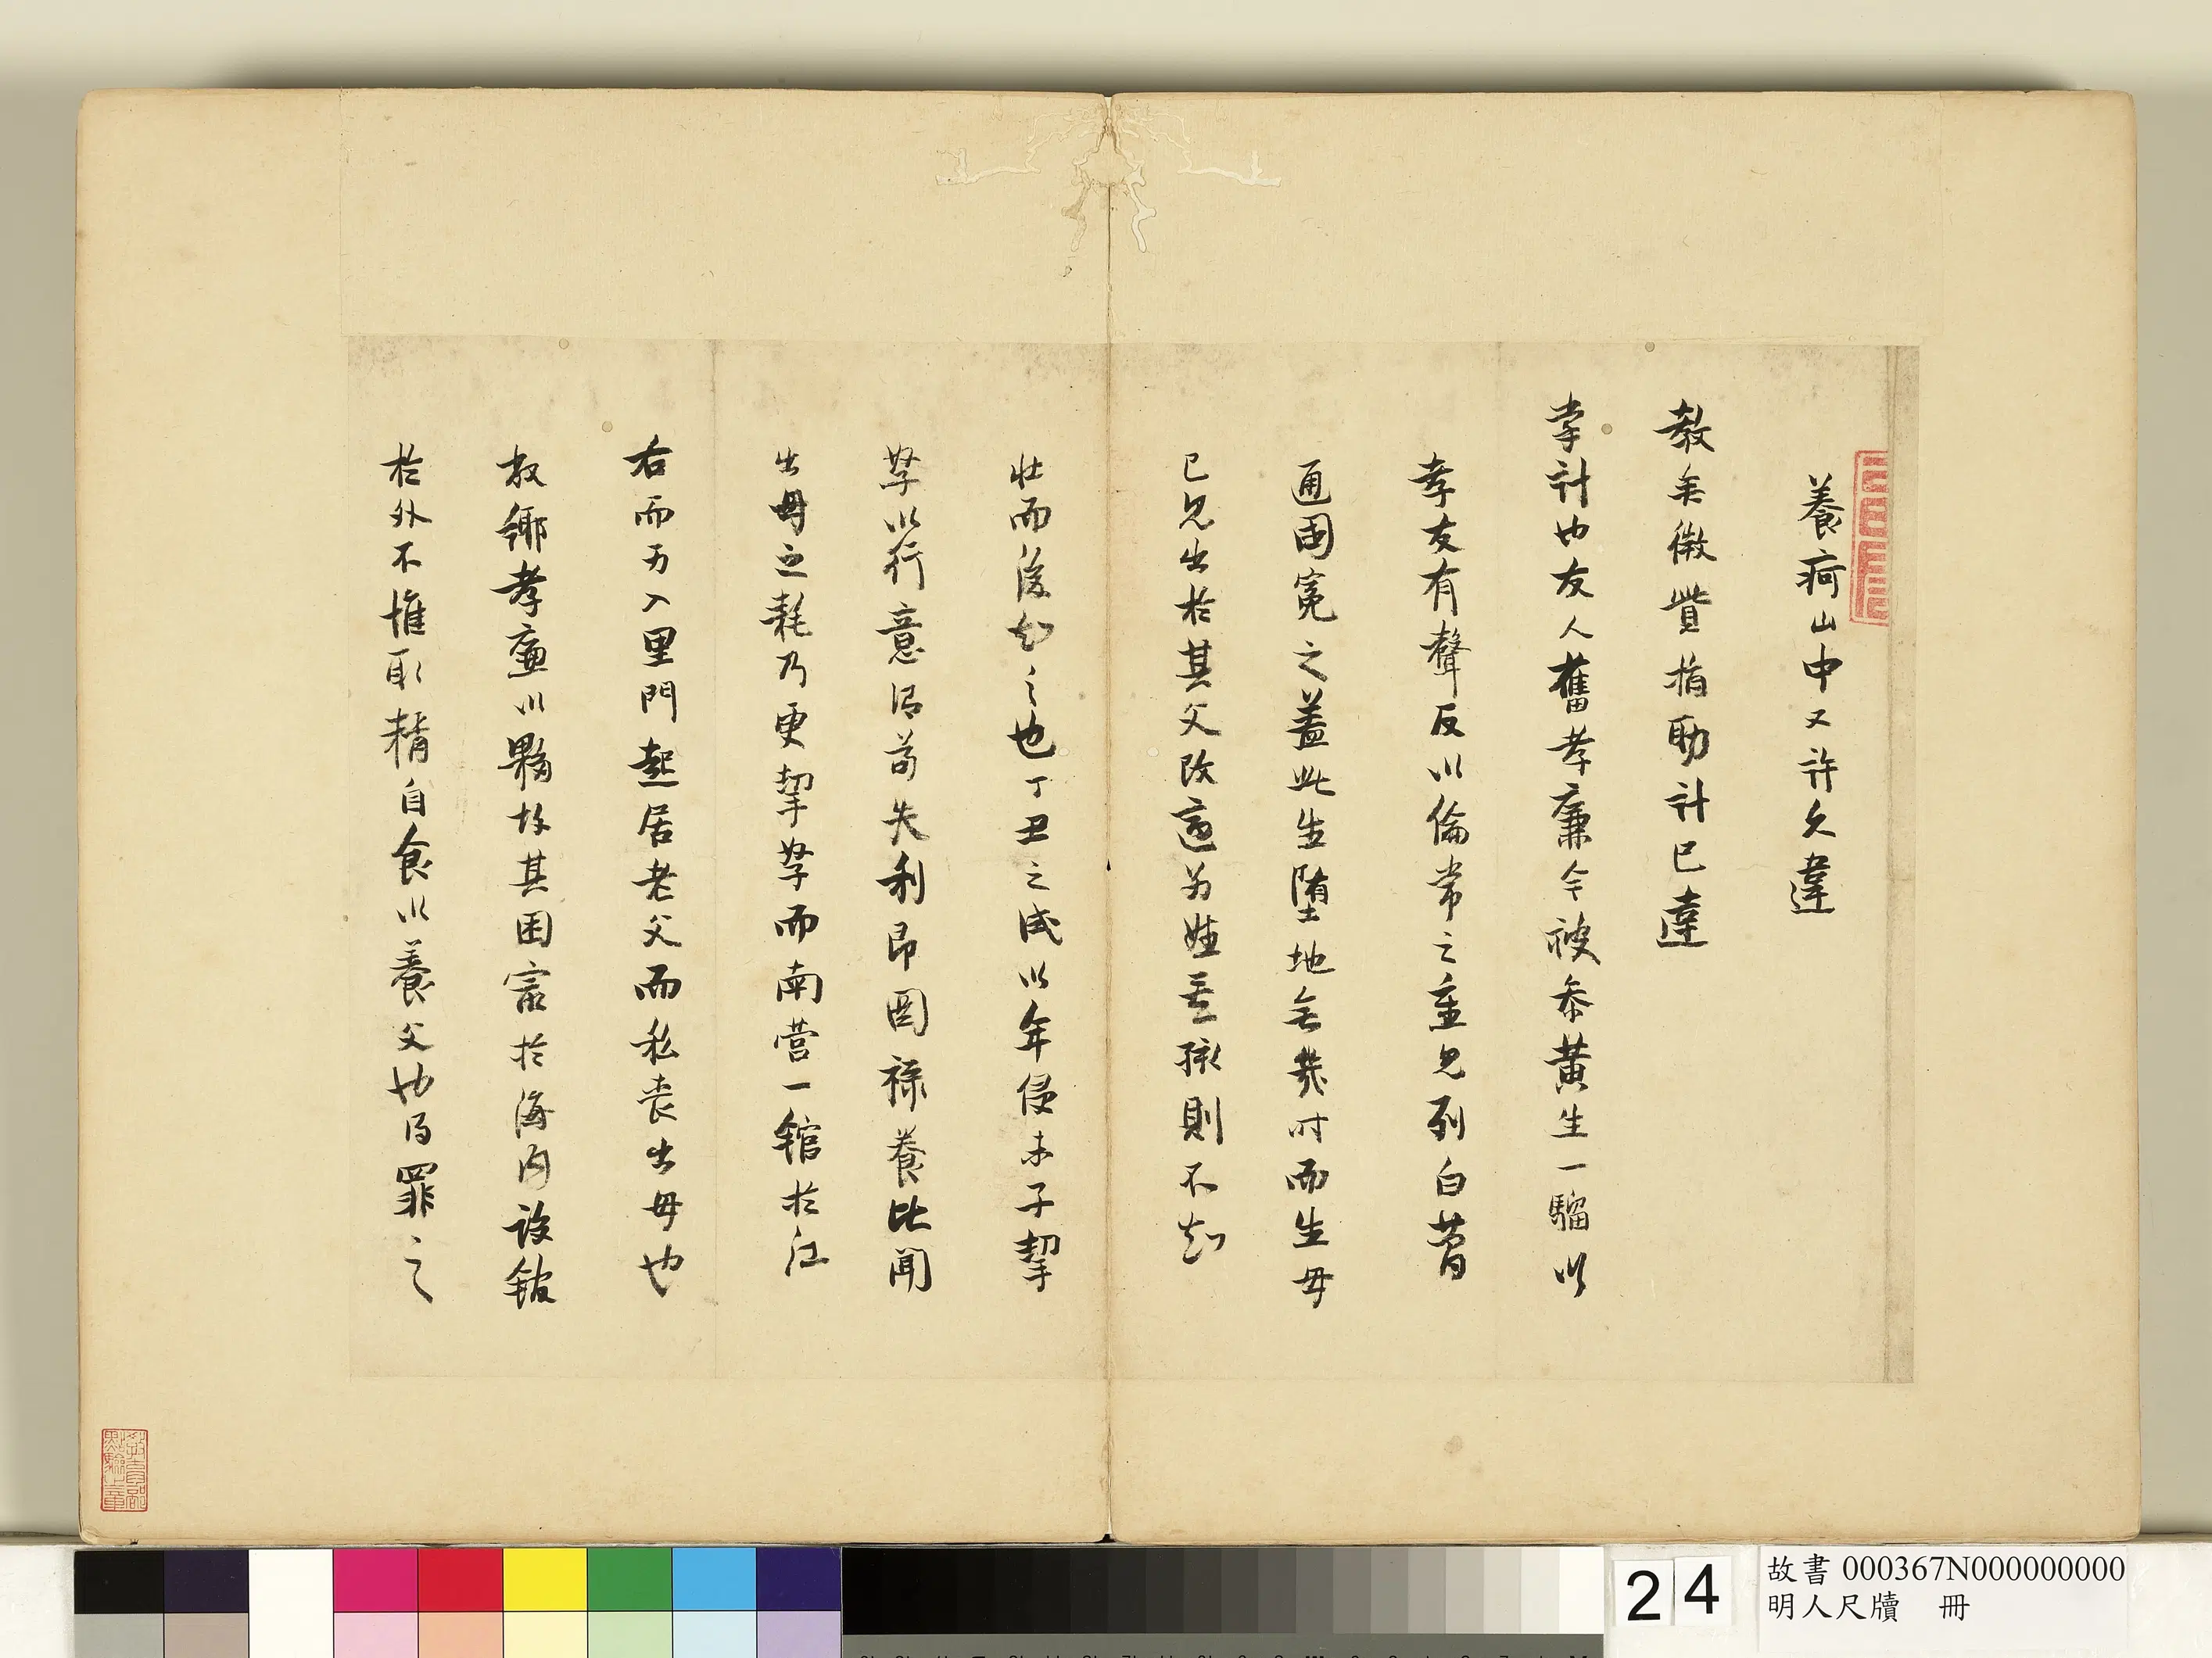 養疴山中又許久違
教矣微貲捐助計已達
掌計也友人舊孝廉今被黃生一騮以
孝友有聲反以倫常之重見列白簡
通國冤之蓋此生墮地無幾時而生母
已見出於其父改適為姓無蹤則不知
壯而後知之也丁丑之歲以年侵未子挈
孥以行意得苟失利即圖祿養比聞
出母之耗乃更挈孥而南營一棺於江
右而乃入里門起居老父而私喪出母也
敝鄉孝廉以夥故其困窘於海內設館
於外不惟取精自食以養父也乃罪之
24
故書 000367N000000000
明人尺牘 冊